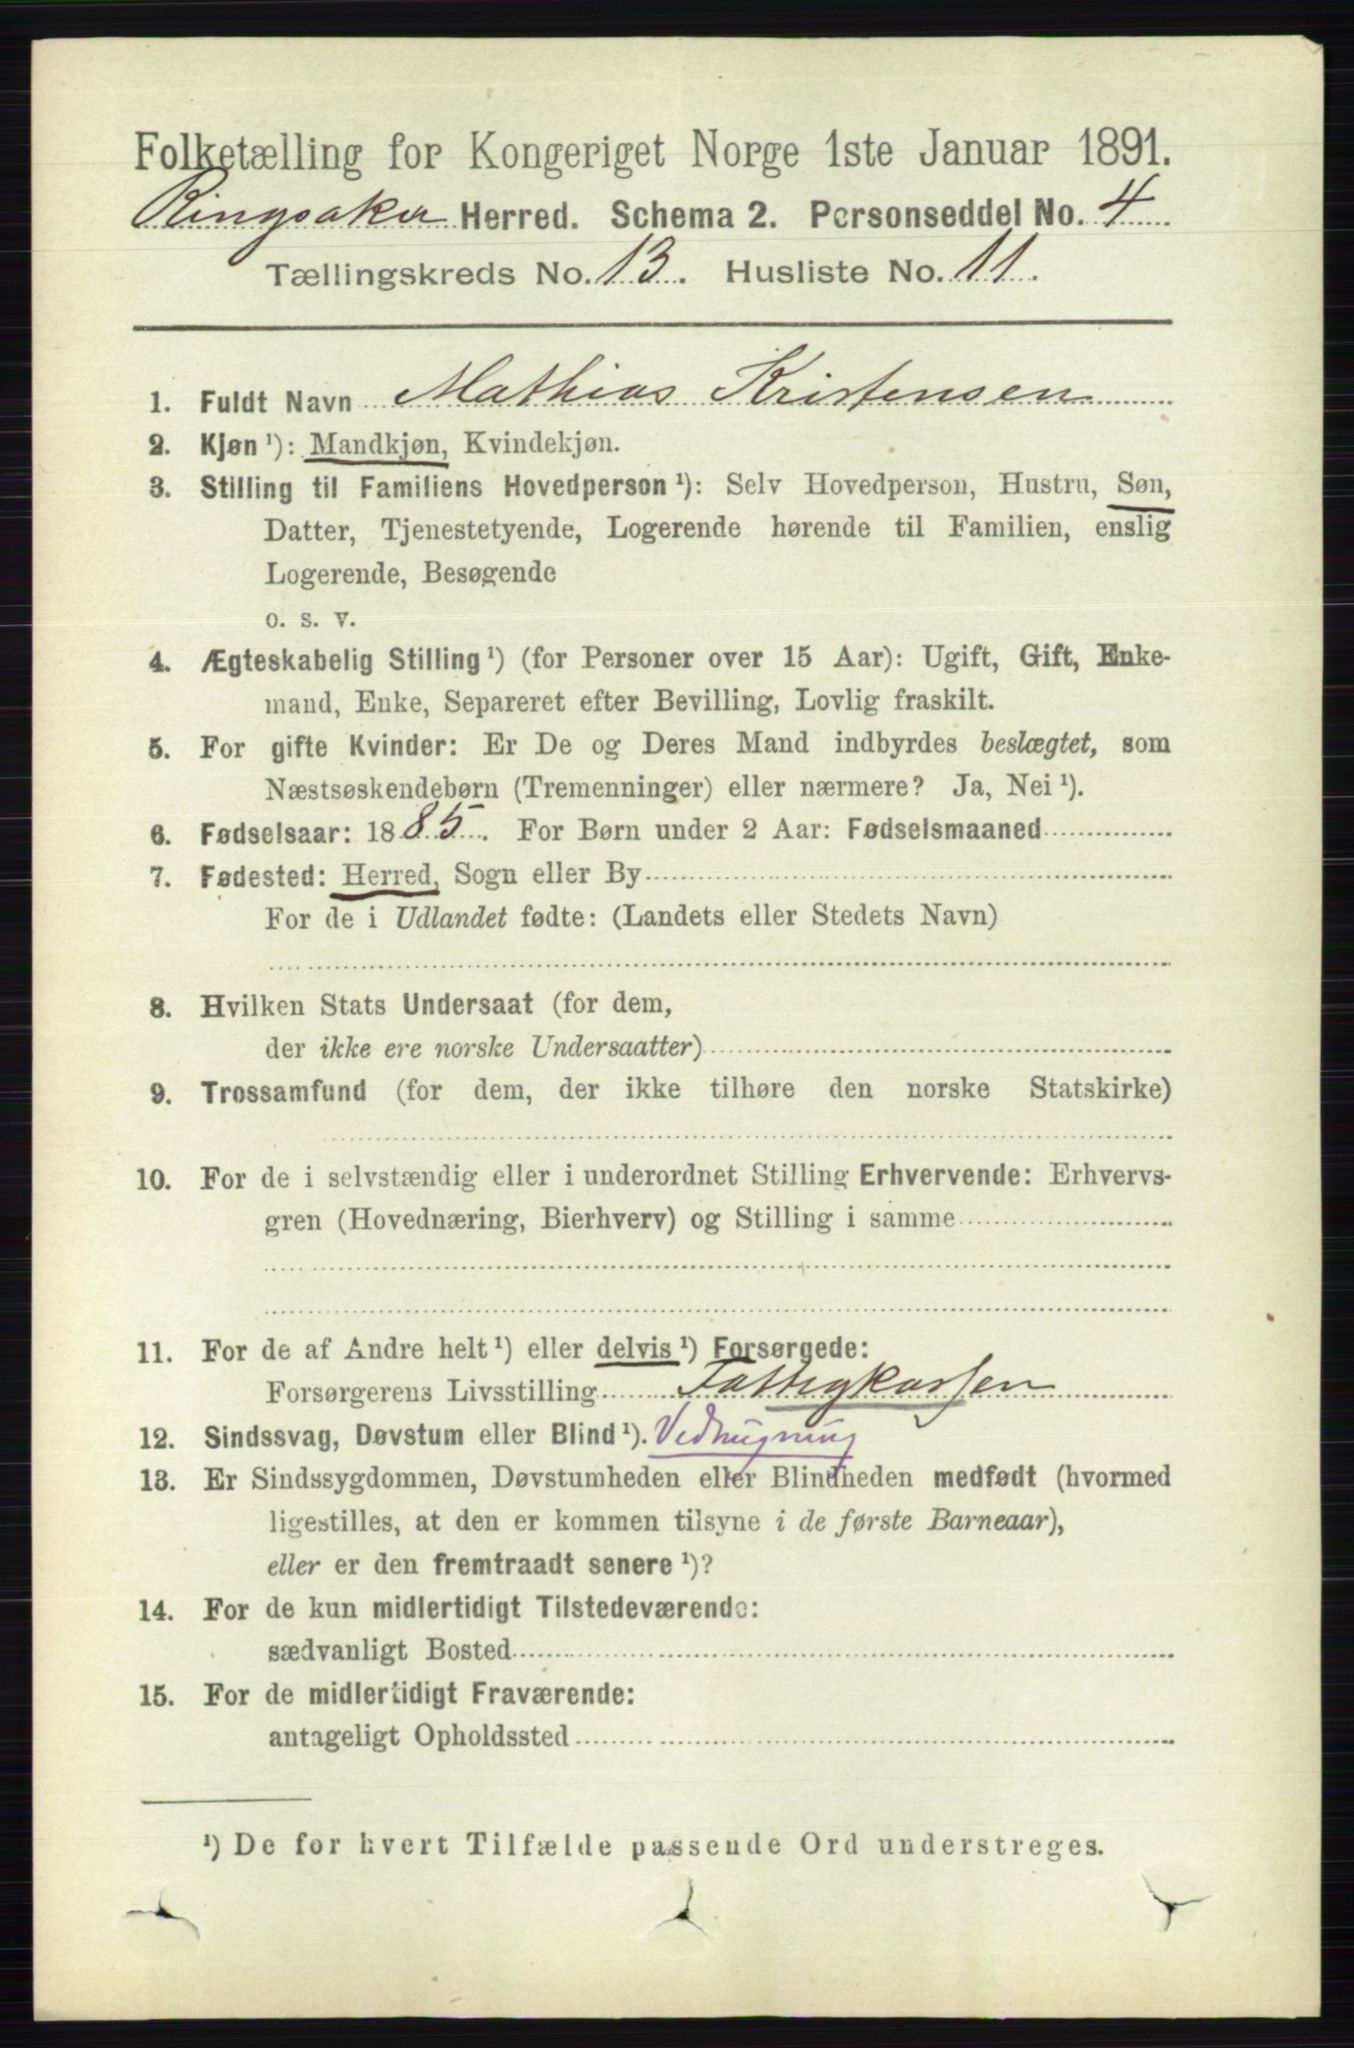 Folketælling for Kongeriget Norge 1ste Januar 1891.
Ringsaker Herred. Schema 2. Personseddel No. 4
Tællingskreds No. 13. Husliste No. 11.
1. Fuldt Navn Mathias Kristensen
2. Kjøn ¹): Mandkjøn, Kvindekjøn.
3. Stilling til Familiens Hovedperson ¹): Selv Hovedperson, Hustru, Søn,
Datter, Tjenestetyende, Logerende hørende til Familien, enslig
Logerende, Besøgende
o. s. v.
4. Ægteskabelig Stilling ¹) (for Personer over 15 Aar): Ugift, Gift, Enke-
mand, Enke, Separeret efter Bevilling, Lovlig fraskilt.
5. For gifte Kvinder: Er De og Deres Mand indbyrdes beslægtet, som
Næstsøskendebørn (Tremenninger) eller nærmere? Ja, Nei ¹).
6. Fødselsaar: 1885. For Børn under 2 Aar: Fødselsmaaned
7. Fødested: Herred, Sogn eller By
For de i Udlandet fødte: (Landets eller Stedets Navn)
8. Hvilken Stats Undersaat (for dem,
der ikke ere norske Undersaatter)
9. Trossamfund (for dem, der ikke tilhøre den norske Statskirke)
10. For de i selvstændig eller i underordnet Stilling Erhvervende: Erhvervs-
gren (Hovednæring, Bierhverv) og Stilling i samme
11. For de af Andre helt ¹) eller delvis ¹) Forsørgede:
Forsørgerens Livsstilling Fattigkassen
12. Sindssvag, Døvstum eller Blind ¹).
13. Er Sindssygdommen, Døvstumheden eller Blindheden medfødt (hvormed
ligestilles, at den er kommen tilsyne i de første Barneaar),
eller er den fremtraadt senere ¹)?
14. For de kun midlertidigt Tilstedeværende:
sædvanligt Bosted
15. For de midlertidigt Fraværende:
antageligt Opholdssted
¹) De for hvert Tilfælde passende Ord understreges.